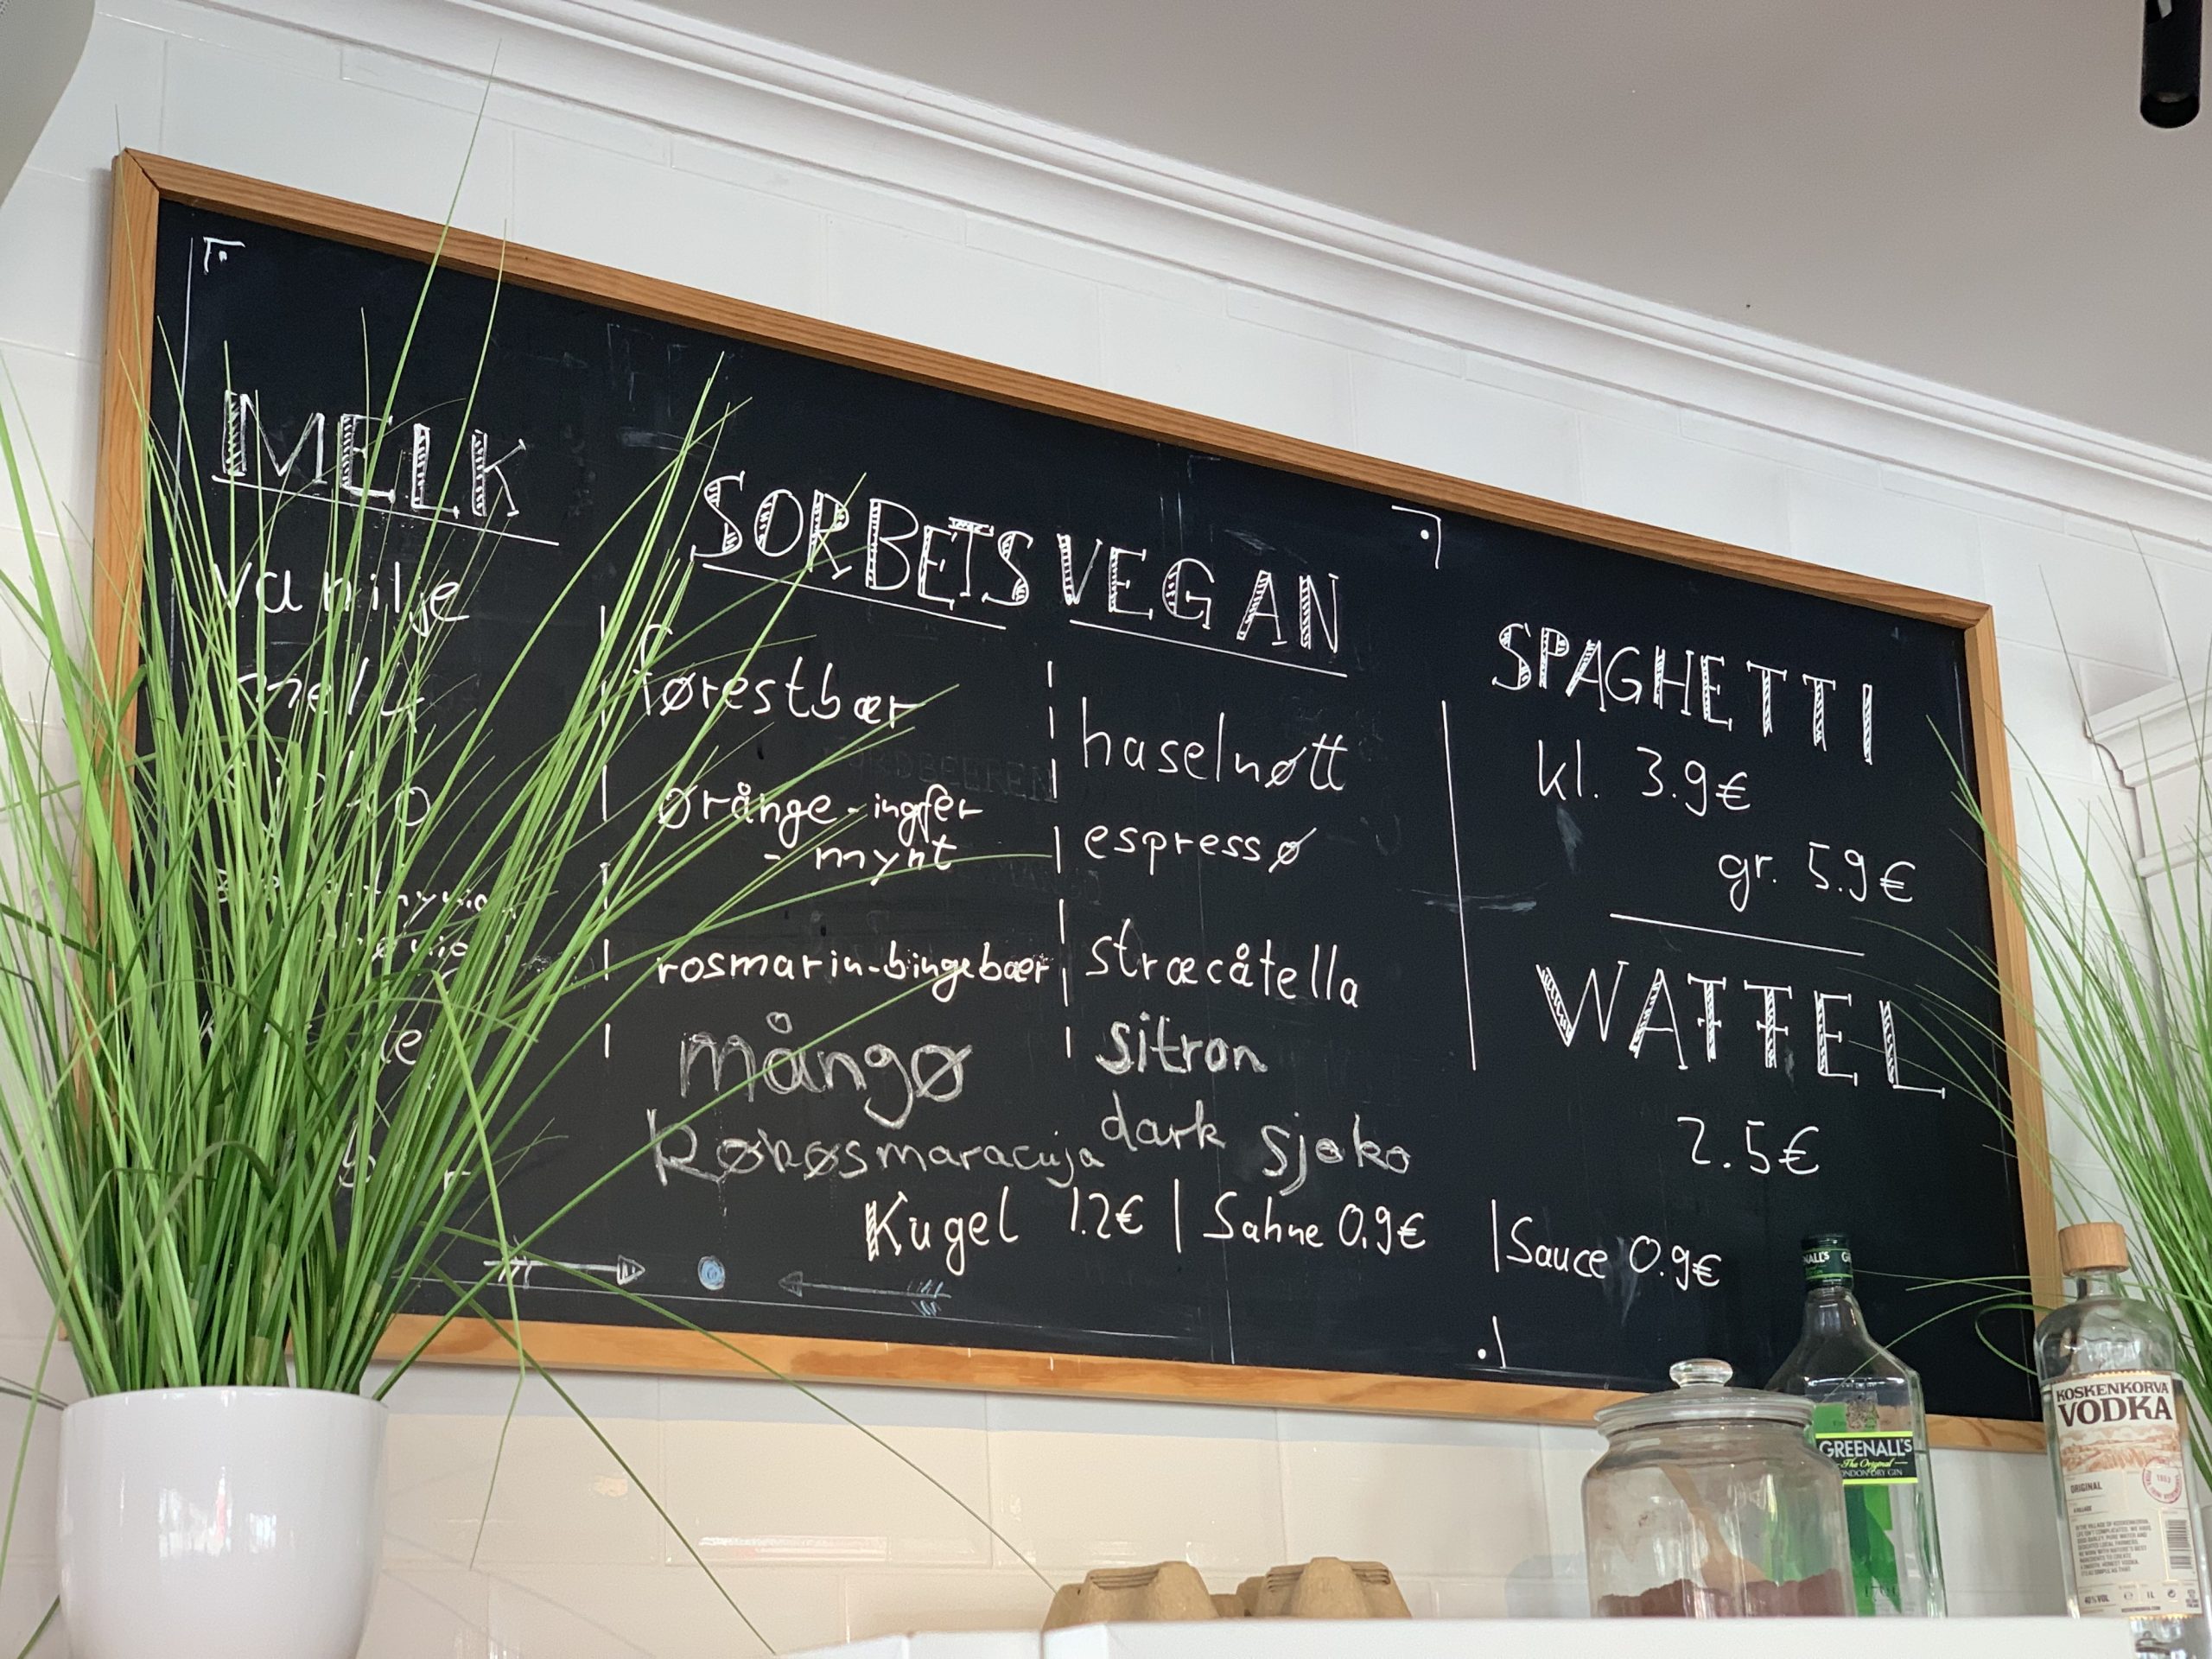 MELK
vanilje
SORBETS VEGAN
førestbær
øránge - ingfer
- mynt
rosmarin-bingebær
mångø
Køkøsmaracuja
haselnøtt
espressø
stræcåtella
sitron
dark sjoko
SPAGHETTI
kl. 3.9€
gr. 5.9€
WAFFEL
2.5€
Kugel 1.2€ | Sahne 0.9€ | Sauce 0.9€
GREENALL'S
The Original
LONDON DRY GIN
KOSKENKORVA
VODKA
ORIGINAL